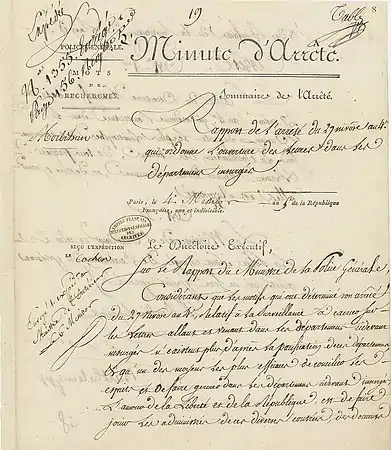 19
8
Table
Expédié
N° 1355
POLICE GÉNÉRALE.
Minute d'Arrêté.
MOTS
DE
RECHERCHES.
Sommaire de l'Arrêté.
Morbihan
Rapport de l'arrêté du 27 nivôse an 4e
qui ordonne l'ouverture des lettres dans les
départemens insurgés
Paris, le 4 Messidor an 4e de la République
Française, une et indivisible.
REÇU L'EXPÉDITION
Cochon
Le Directoire Exécutif,
Sur le Rapport du Ministre de la Police Générale
Considérant que les motifs qui ont déterminé son arrêté
du 27 nivôse an 4e, relatif à la surveillance à exercer sur
les lettres allant et venant dans les départemens
insurgés n'existent plus, d'après la pacification de ces départemens
& qu'un des moyens les plus efficaces de concilier les
esprits et de faire germer dans les départemens insurgés
l'amour de la Liberté et de la République, est de faire
jouir les administrés de ces diverses contrées